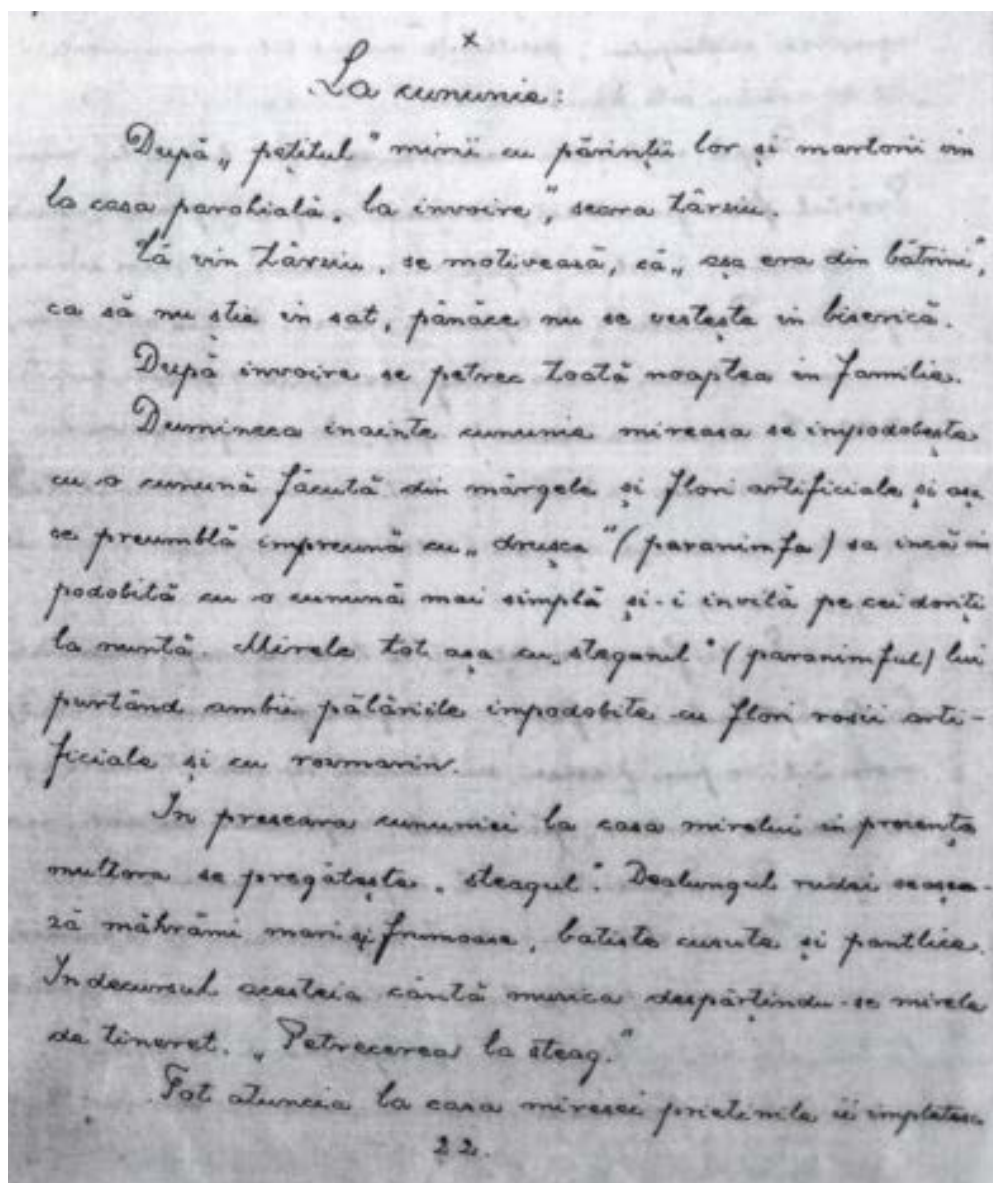 x
La cununie:
După „pețitul" mirii cu părinții lor și martorii vin
la casa parohială „la învoire", seara târziu.
Că vin târziu, se motivează, că „așa era din bătrini",
ca să nu știe in sat, pănăce nu se vestește in biserică.
După invoire se petrec toată noaptea in familie.
Dumineca inainte cununie mireasa se impodobește
cu o cunună făcută din mărgele și flori artificiale și așa
se preumblă impreună cu „drușca" (paranimfa) sa incă im
podobită cu o cunună mai simplă și-i invită pe cei doriți
la nuntă. Mirele tot așa cu „steganul" (paranimful) lui
purtând ambii pălăriile impodobite cu flori rosii arti-
ficiale și cu rozmarin.
In preseara cununiei la casa mirelui in prezența
multora se pregătește „steagul". Dealungul rudei se așea-
ză măhrămi mari și frumoase, batiste cusute și pantlice.
In decursul acesteia cântă muzica despărțindu-se mirele
de tineret. „Petrecerea la steag."
Tot atuncia la casa miresei prietinile ii impletesc
22.